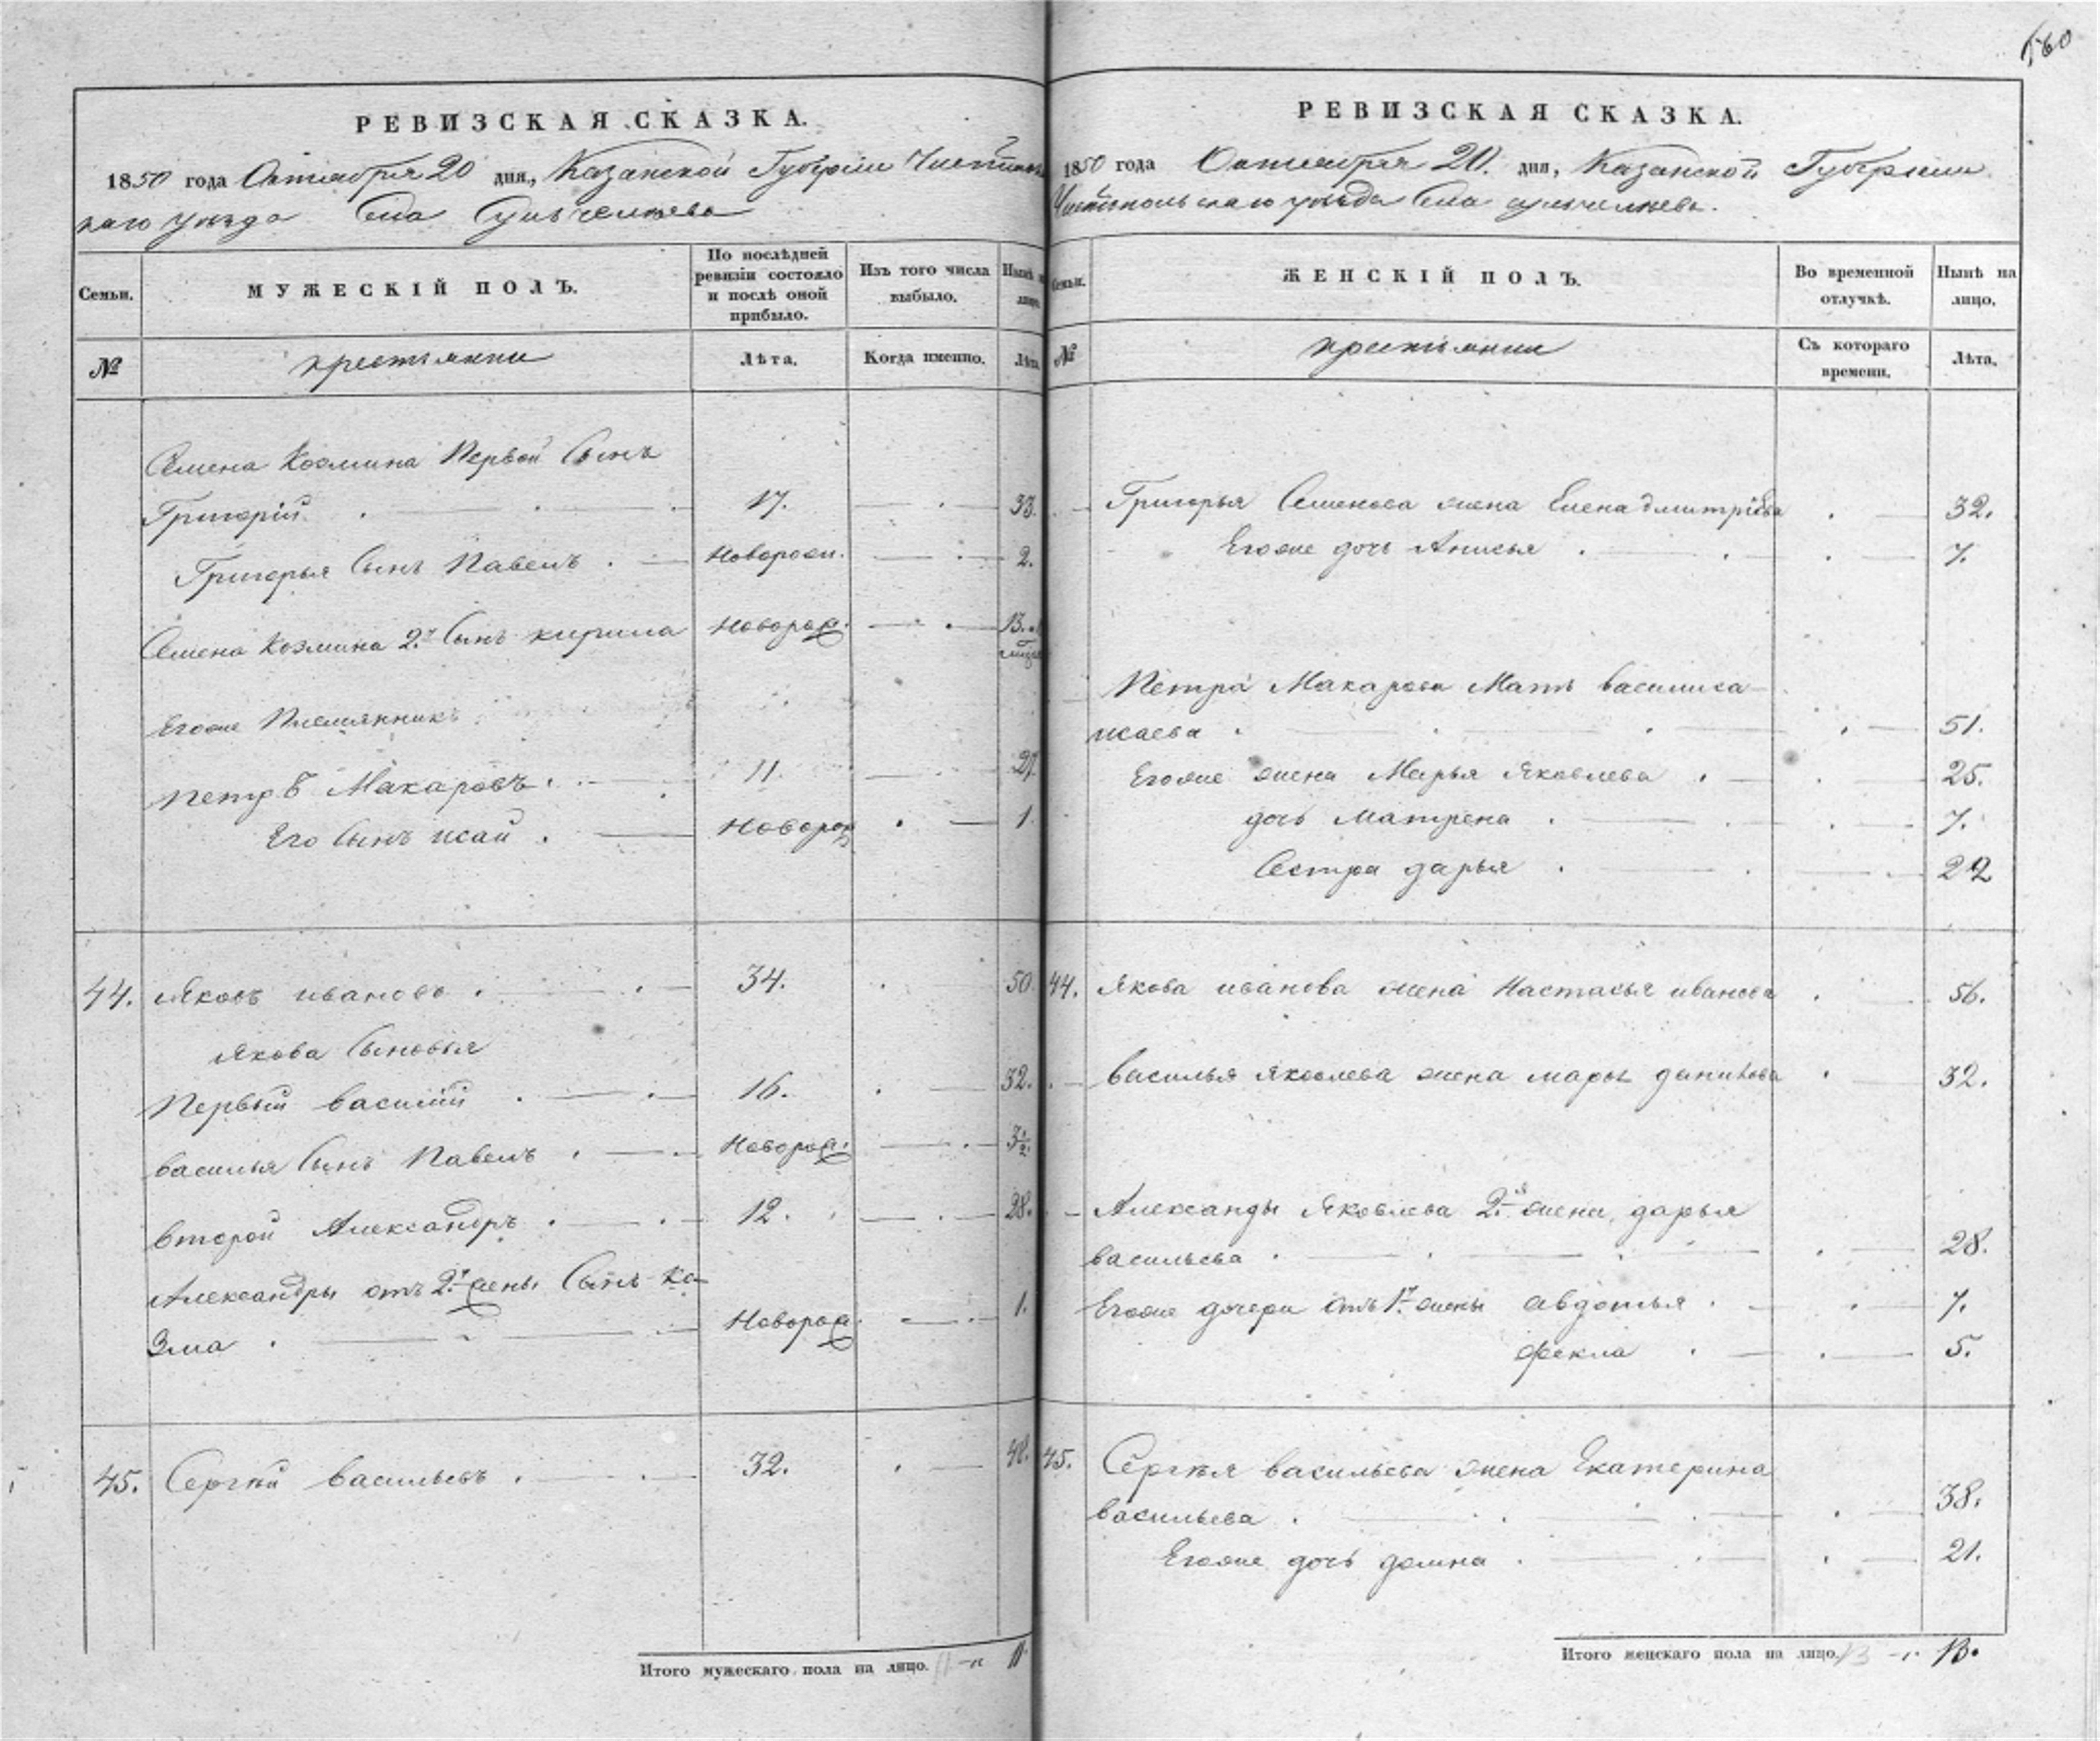 560
РЕВИЗСКАЯ СКАЗКА.
1850 года Октября 20 дня, Казанской Губернии Чистополь
скаго уѣзда Села Сульчелеева
Семьи.
МУЖЕСКІЙ ПОЛЪ.
По послѣдней ревизіи состояло и послѣ оной прибыло.
Изъ того числа выбыло.
Нынѣ на лицо.
№
крестьянии
Лѣта.
Когда именно.
Лѣта.
Семена Козмина Первой Сынъ
Григорій 17. 33.
Григорья Сынъ Павелъ Новорож. 2.
Семена Козмина 2й Сынъ кирила Новорож. 13.
Егоже Племянникъ
Петръ Макаровъ 11. 27.
Его Сынъ исай Новорож 1.
44. Яковъ ивановъ 34. 50.
Якова Сыновья
Первый василій 16. 32.
василья Сынъ Павелъ Новорож. 3 1/2.
второй Александръ 12. 28.
Александры отъ 2й жены Сынъ Ко-
зма Новорож. 1.
45. Сергѣй васильевъ 32. 48.
Итого мужескаго пола на лицо. 11.
РЕВИЗСКАЯ СКАЗКА.
1850 года Октября 20. дня, Казанской Губерніи
Чистопольскаго уѣзда Села сульчелеева.
Семьи.
ЖЕНСКІЙ ПОЛЪ.
Во временной отлучкѣ.
Нынѣ на лицо.
№
крестьянии
Съ котораго времени.
Лѣта.
Григорья Семенова жена Елена дмитріева 32.
Егоже дочь Анисья 7.
Петра Макарова Мать василиса
исаева 51.
Егоже жена Марья Яковлева 25.
дочь Матрена 7.
Сестра дарья 22
44. Якова иванова жена Настасья иванова 56.
василья Яковлева жена марья данилова 32.
Александры Яковлева 2я жена дарья
васильева 28.
Егоже дочери отъ 1й жены авдотья 7.
фекла 5.
45. Сергѣя васильева жена Екатерина
васильева 38.
Егоже дочь домна 21.
Итого женскаго пола на лицо. 13 13.